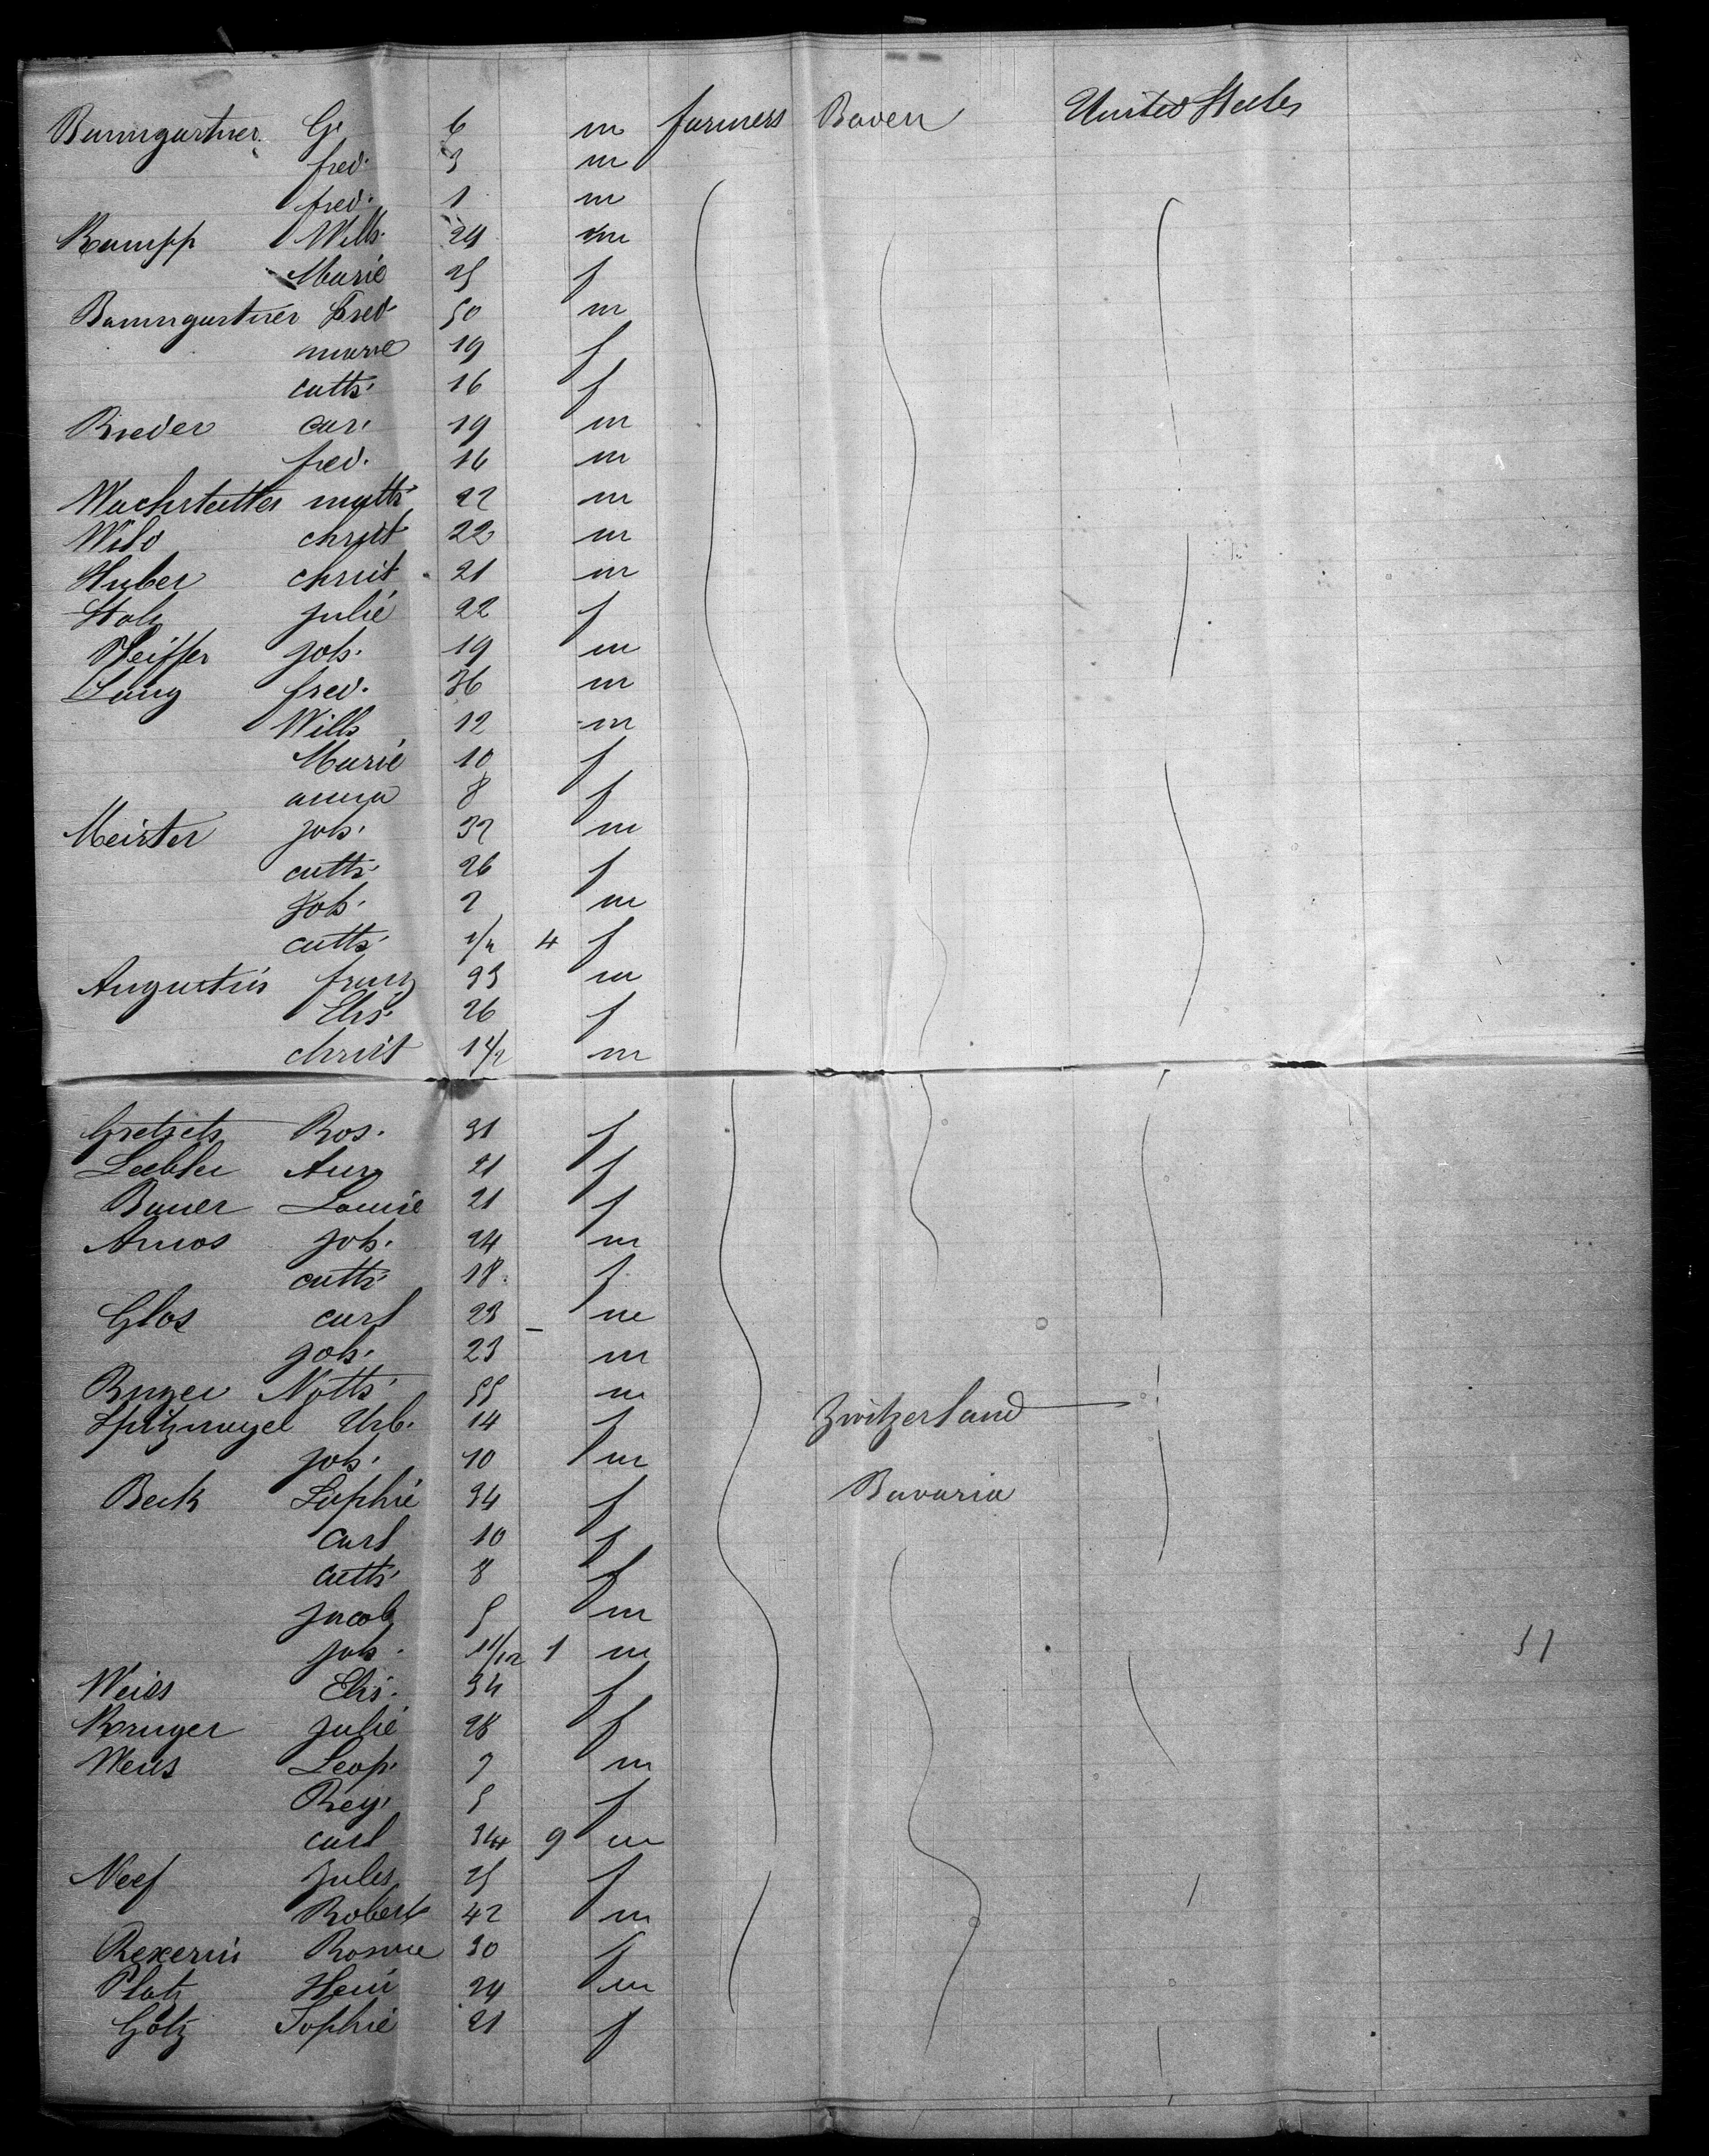 Baumgartner Ge 6 m farmers Baden United States
fred. 3 m
fred. 1 m
Kumpp Wilh. 24 m
Marie 25 f
Baumgartner Fred 50 m
marie 19 f
cath. 16 f
Rieder car. 19 m
fred. 16 m
Wachstetter math. 22 m
Wild christ 22 m
Huber christ 21 m
Holz julie 22 f
Pfeiffer joh. 19 m
Lang fred. 36 m
Wilh 12 m
Marie 10 f
anna 8 f
Meister joh. 32 m
cath. 26 f
joh. 2 m
cath. 4 f
Augustin franz 33 m
Elis. 26 f
christ 1 1/2 m
Ros. 31 f
Aug 21 f
Bauer Louise 21 f
Amos joh. 24 m
cath. 18 f
Glos carl 23 m
joh. 23 m
55 m
Spitznagel Urb. 14 f Zwitzerland
joh. 10 m
Beck Sophie 34 f Bavaria
carl 10 f
cath. 8 f
jacob 5 m
joh. 11/12 1 m
Weiss Elis. 34 f
Kruger julie 28 f
Weiss Leop. 7 m
Reg. 5 f
carl 3/4 9 m
Neef jules 25 f
Robert 42 m
Rexerin Rosine 30 f
Platz Hein 24 m
Götz Sophie 21 f
51